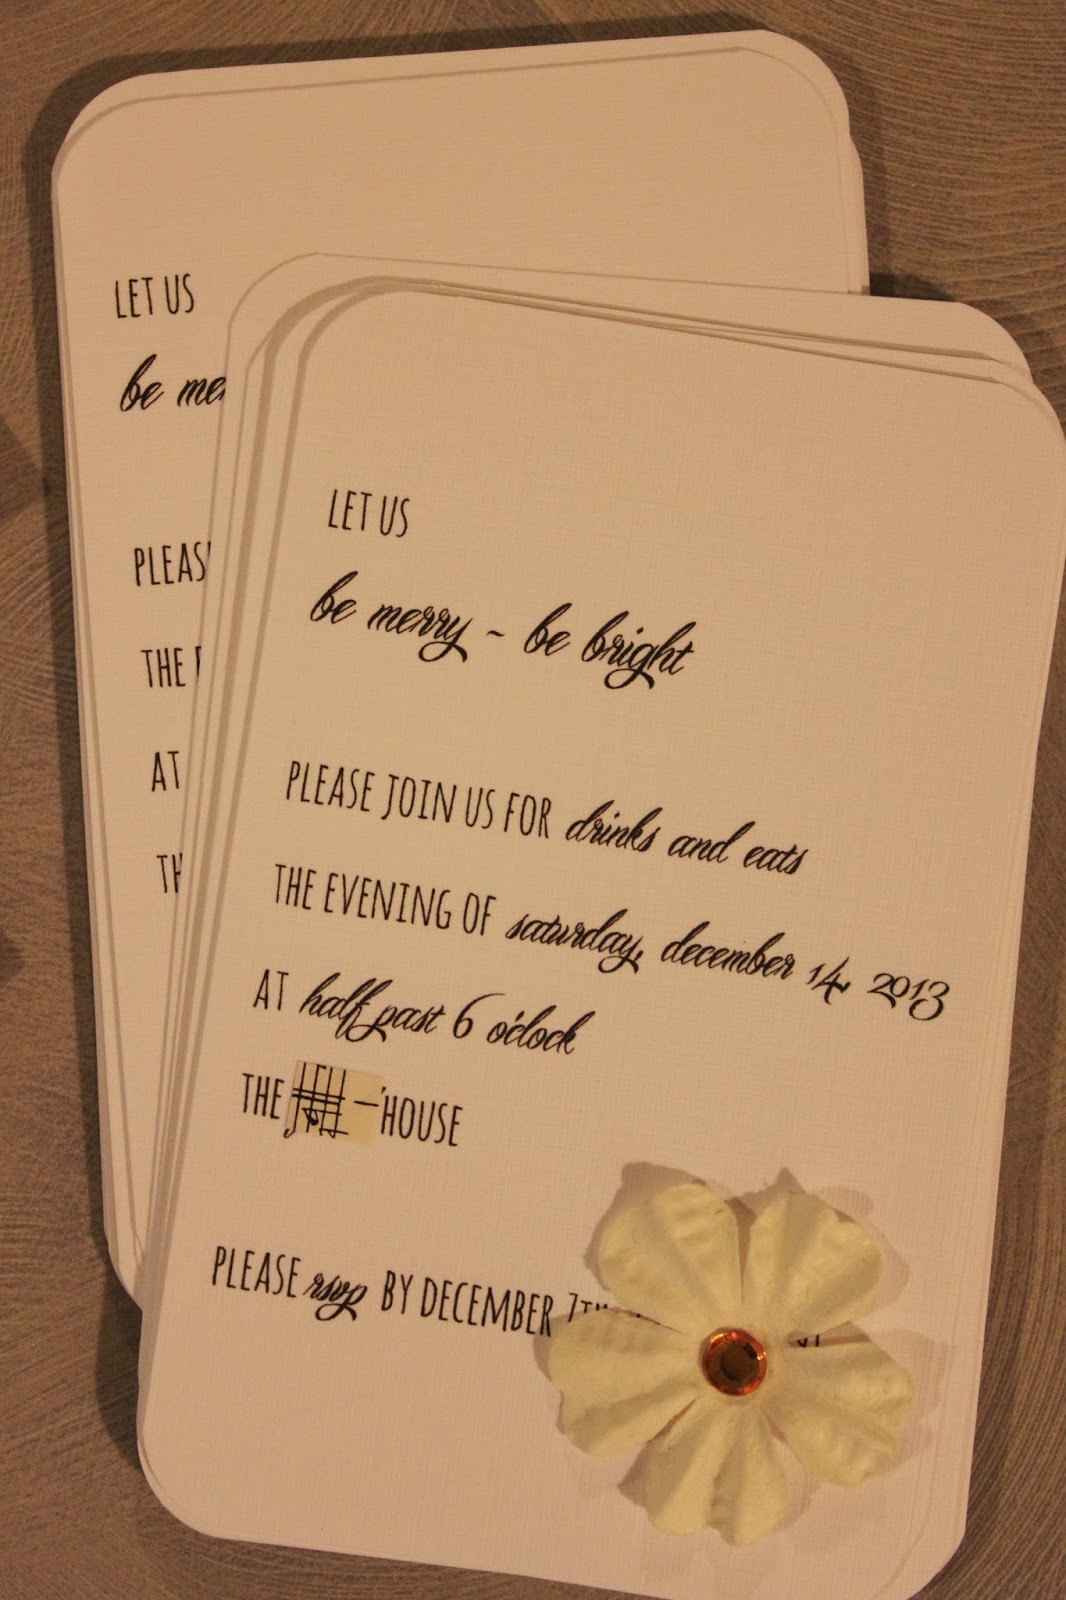 LET US
be me
PLEAS
THE
AT
TH
LET US
be merry ~ be bright
PLEASE JOIN US FOR drinks and eats
THE EVENING OF saturday, december 14, 2013
AT half past 6 o'clock
THE HOUSE
PLEASE rsvp BY DECEMBER 7TH